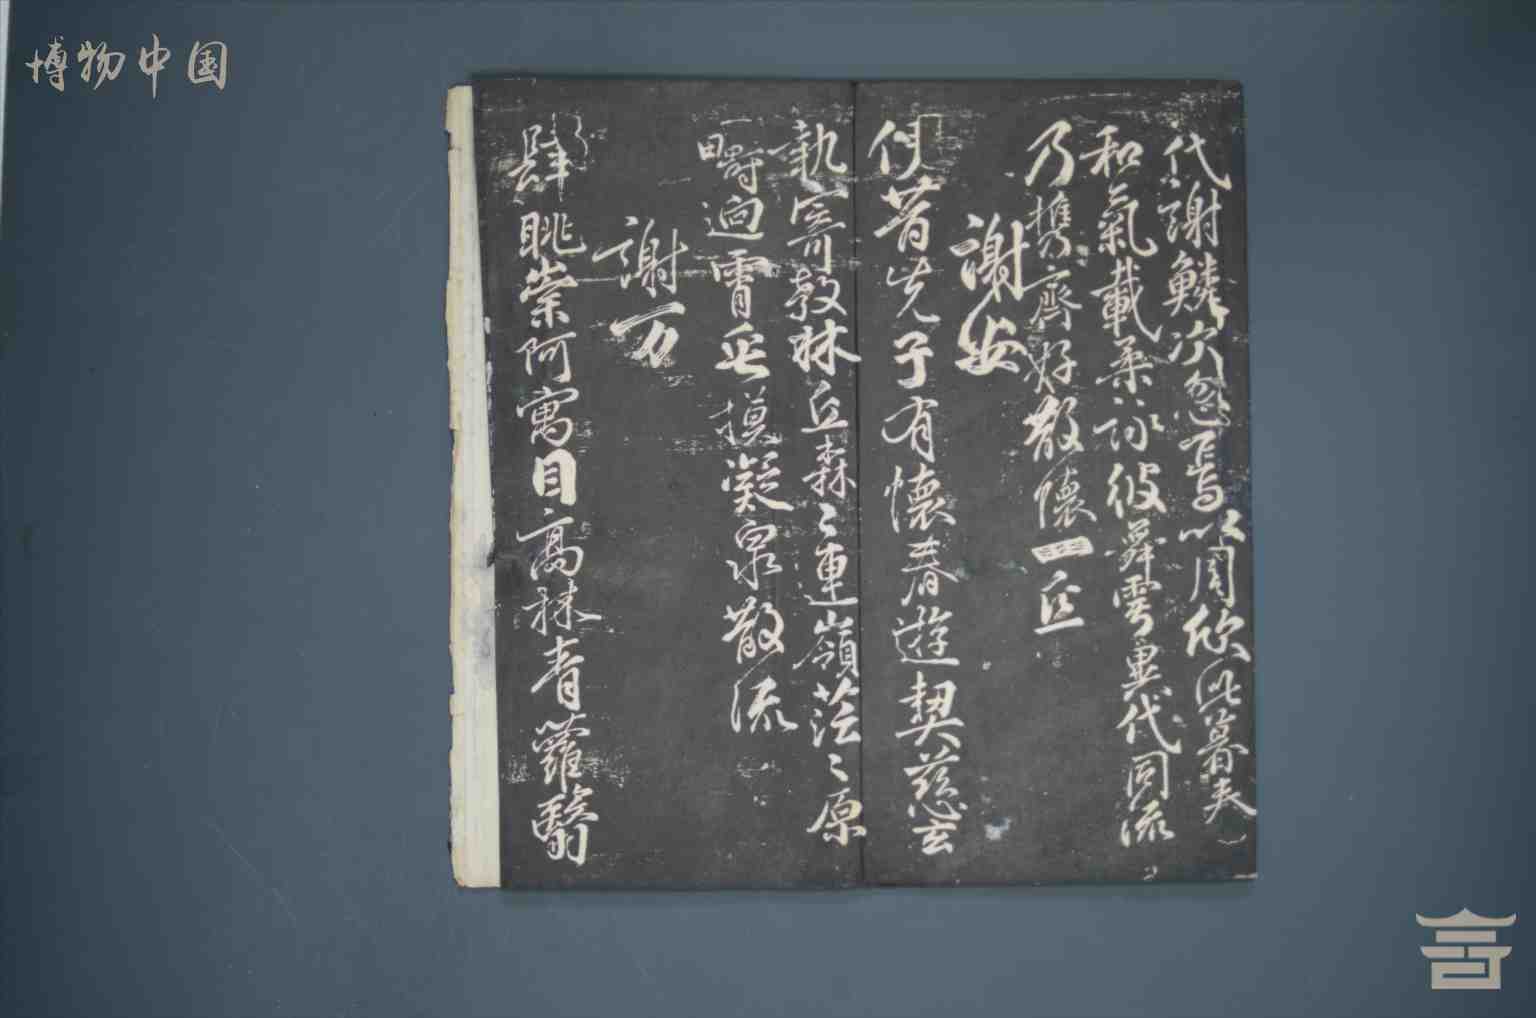 博物中国
代謝鱗次忽焉以周欣此暮春
和氣載柔詠彼舞雩異代同流
乃攜齊好散懷一丘
謝安
伊昔先子有懷春遊契慈言
執寄敖林丘森〻連嶺茫〻原
疇迥霄垂模凝泉散流
謝万
肆眺崇阿寓目高林青蘿翳